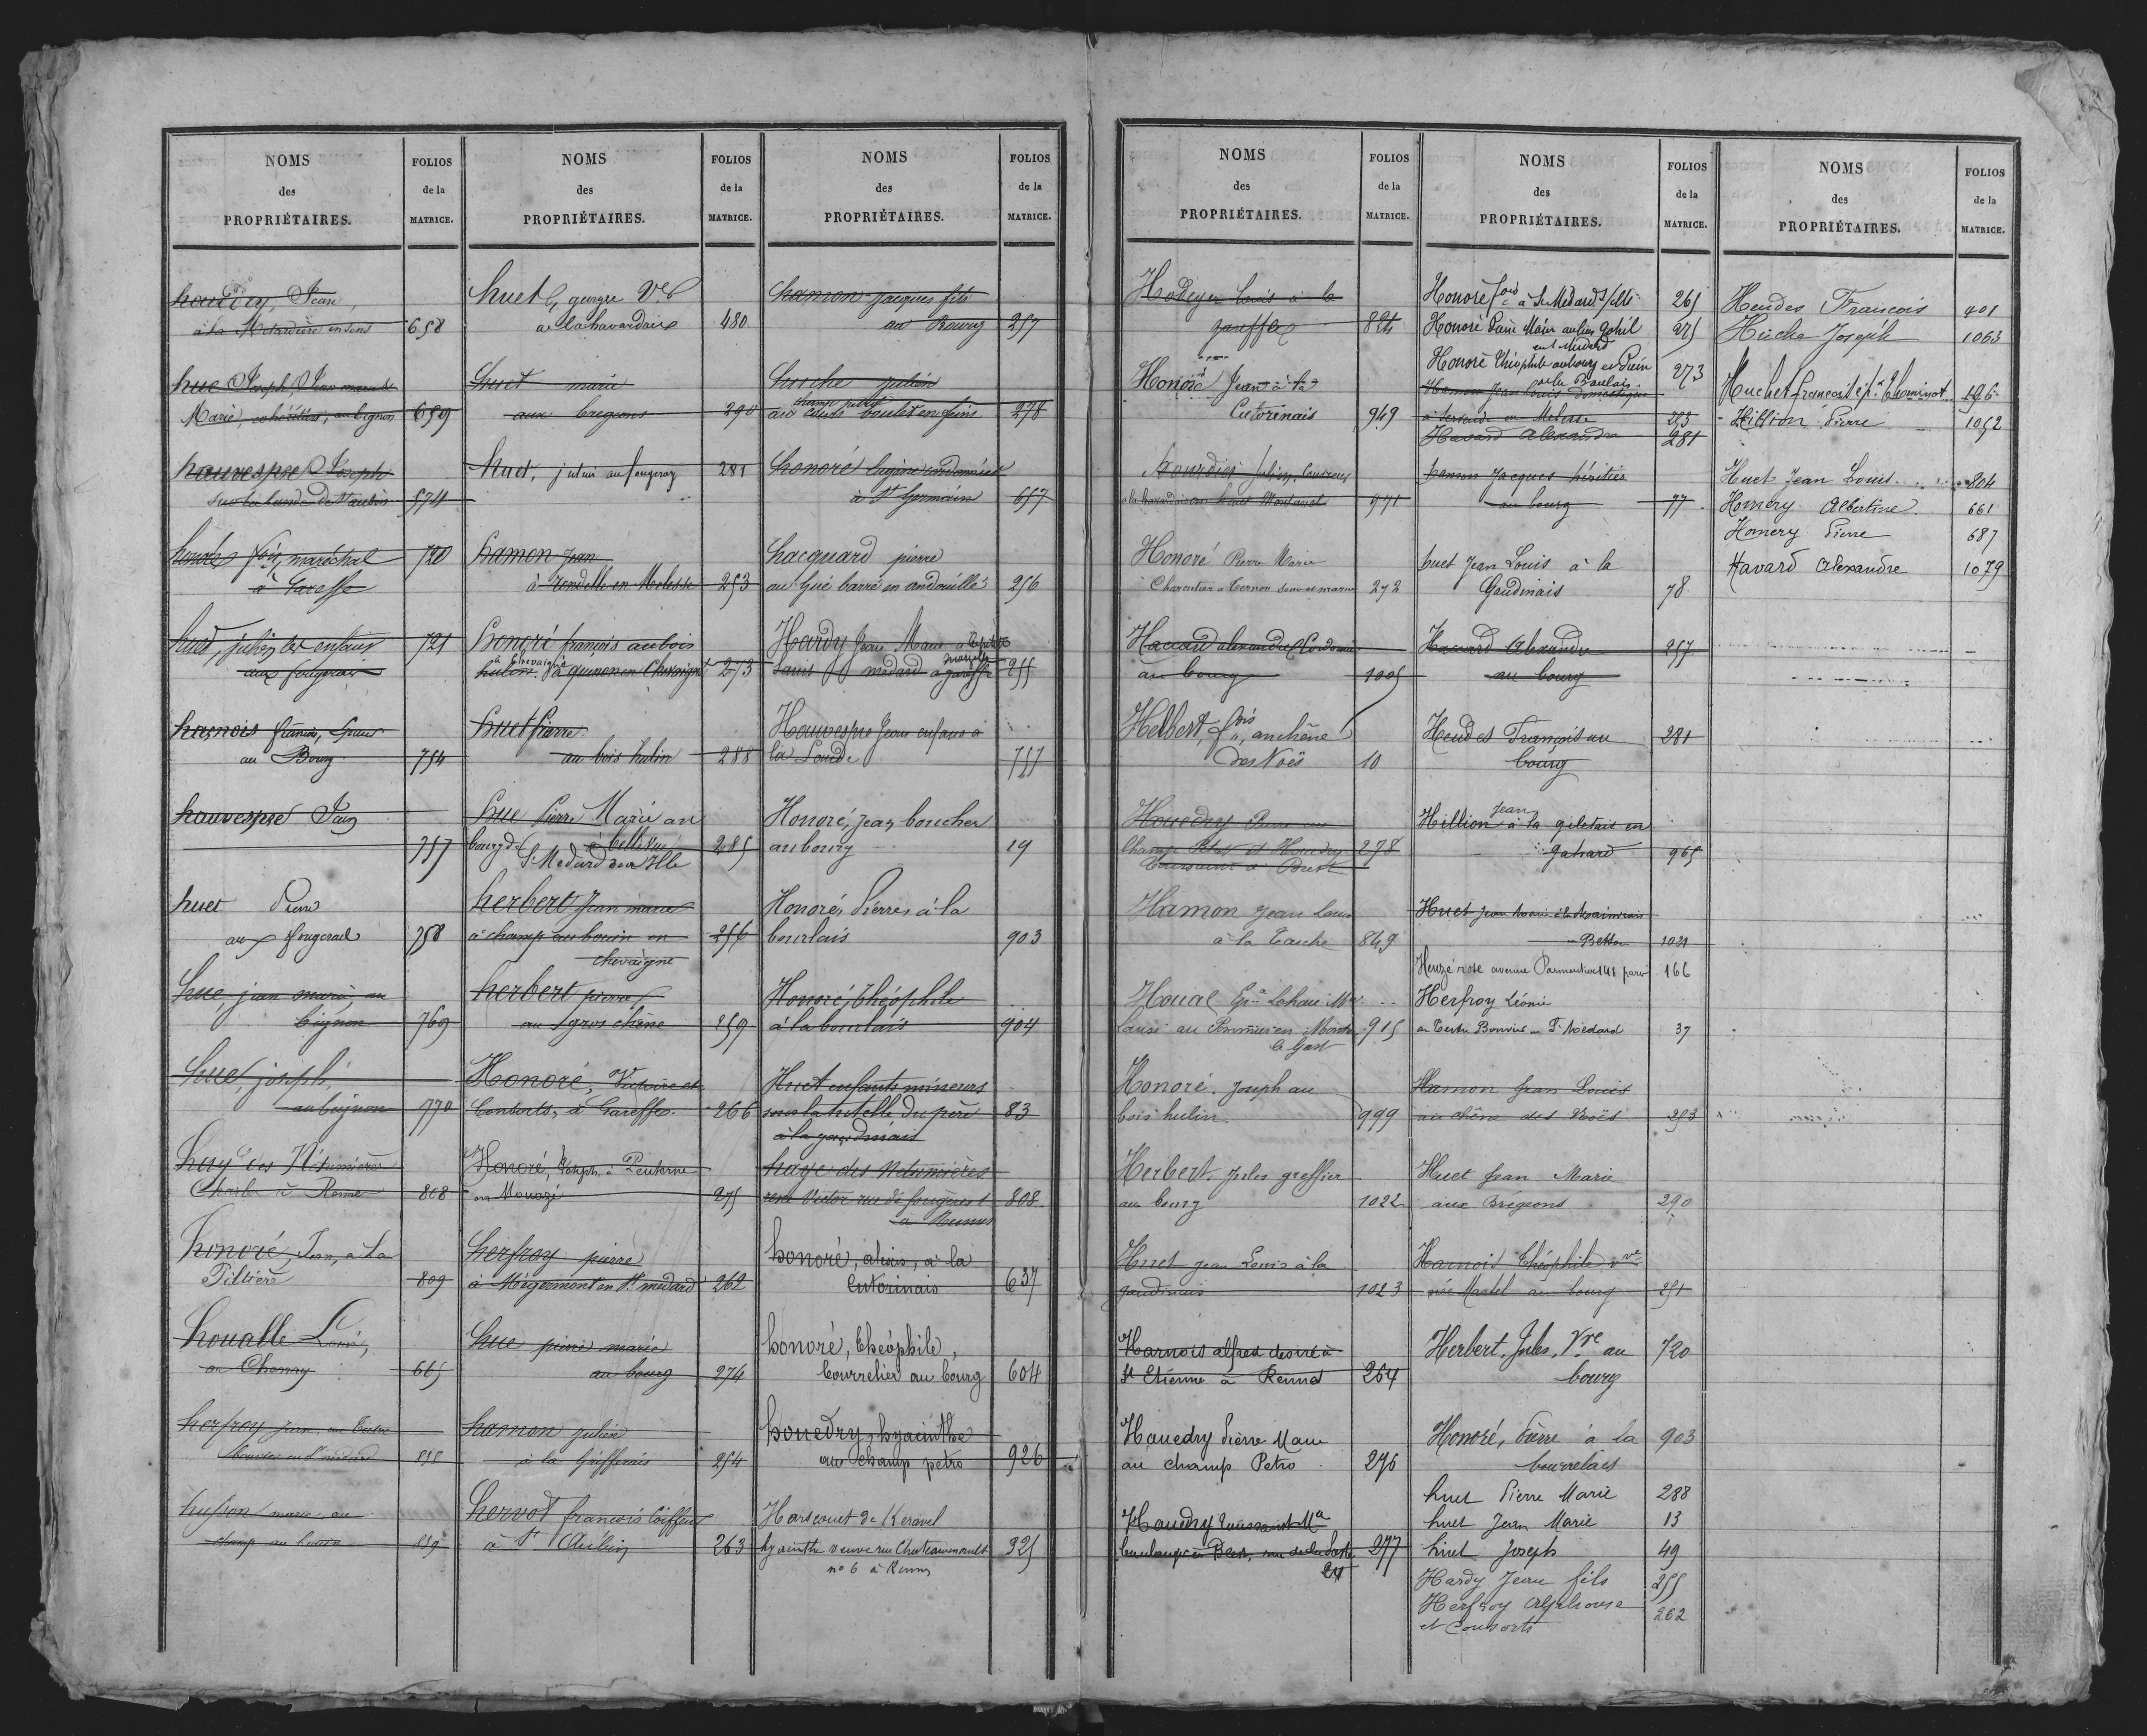 NOMS
des
PROPRIÉTAIRES.
FOLIOS
de la
MATRICE.
houedry, Jean,
à la Métardière en sens 658
hue Joseph, Jean marie et
Marie, cohéritiers, au bignon 659
hauvespre Joseph
sur la lande de St aubin 574
honoré fois, maréchal 720
à Gareffe
huet, julien les enfans 721
aux fougerais
harnois
au Bourg 754
hauvespre Jean
757
huet Pierre
aux fougerais 758
hue, jean marie, au
bignon 769
hue, joseph,
au bignon 770
haye des Nétumières
Charles à Rennes 808
honoré, Jean, à la
Piltière 809
houalle Louis,
au Chesnay 665
herfroy Jean, au Tertre
Bouvier en St médard 818
marie au
champ au bouin 819
NOMS
des
PROPRIÉTAIRES.
FOLIOS
de la
MATRICE.
huet, george Ve
à la havardais 480
huet marie
aux bregeons 290
huet, julien au fougeray 281
hamon Jean
à tendelle en Melesse 253
honoré françois au bois
hulin. à quinon en Chevaigné 273
à Chevaigné
huet pierre
au bois hulin 288
hue Pierre Marie au
bourg de à bellevue 285
St Medard sur Ille
herbert Jean marie
à champ au bouin en 256
chevaigné
herbert pierre
au gros chêne 259
Honoré, Victoire et
Consorts, à Gareffe. 266
Honoré, Joseph à
en Mouazé 275
herfroy pierre
à Mégermont en St medard 262
hue pierre marie
au bourg 274
hamon julien
à la Griffrais 254
hervot francois Coiffeur
à St Aubin 263
NOMS
des
PROPRIÉTAIRES.
FOLIOS
de la
MATRICE.
hamon jacques fils
au Bourg 257
huche julien
champ petit
en feins 278
honoré Eugène cordonnier
à St Germain 657
hacquard pierre
au Gué barré en andouillé 256
Hardy Jean Marie
medard à gareffe 255
Hauvespre Jean enfans à
la Lande 751
Honoré, Jean boucher
au bourg 19
Honoré, Pierre, à la
bourlais 903
Honoré, théophile
à la bourlais 904
Huet enfants mineurs
sous la tutelle du père 83
à la gaudinais
haye des Netumières
Victor rue de fougères 1 808
à Rennes
honoré, alexis, à la
Cutorinais 637
honoré, théophile,
bourrelier au bourg 604
houedry, hyacinthe
au champ petro 926
Harscouet de Keravel
hyacinthe veuve rue Chateaurenault 325
no 6 à Rennes
NOMS
des
PROPRIÉTAIRES.
FOLIOS
de la
MATRICE.
Hodeyer Louis à la
gareffe 824
Honoré Jean à la
Cutorinais 949
Julien, Couvreur
971
Honoré Pierre Marie
Charcutier à Vernon 272
Havard alexandre Cordonnier
au bourg 1005
Helbert, fois, au chêne
des Noës 10
Houedry
Champ Petro et Houedry 278
Toussaint à Brest
Hamon Jean Louis
à la Touche 849
Houal
Louise au en 915
le Gast
Honoré Joseph au
bois hulin 999
Herbert Jules greffier
au bourg 1022
Huet Jean Louis à la
gaudinais 1023
Harnois alfred
St Etienne à Rennes 264
Houedry Pierre Marie
au champ Petro 296
Houedry Toussaint Ma
boulanger à Brest, rue de la Porte 277
24
NOMS
des
PROPRIÉTAIRES.
FOLIOS
de la
MATRICE.
Honoré fois à St Medard s/Ille 265
Honoré 275
en St Médard
Honoré Théophile au bourg 273
Hamon Jean Louis domestique
en Melesse 253
Havard Alexandre 281
hamon Jacques héritiers
au bourg 77
huet Jean Louis à la
Gaudinais 78
Havard Alexandre 257
au bourg
Heudes François au 281
bourg
Hillion Jean à la giletais en
Gahard 965
Huet Jean Marie
Betton 1021
Heuzé rose avenue Parmentier 141 paris 166
Herfroy Léonie
au Tertre Bouvier en St Médard 37
Hamon Jean Louis
au chêne des Noës 253
Huet Jean Marie
aux Brégeons 290
Harnois Théophile vve
née Martel au bourg 251
Herbert, Jules, Vve au 720
bourg
Honoré, Pierre à la 903
bourrelais
huet Pierre Marie 288
huet Jean Marie 13
huet Joseph 49
Hardy Jean fils 255
Herfroy Alphonse 262
et Consorts
NOMS
des
PROPRIÉTAIRES.
FOLIOS
de la
MATRICE.
Heudes François 401
Huche Joseph 1063
Huchet francois 196
Hillion Pierre 1052
Huet Jean Louis 804
Homery Albertine 661
Homery Pierre 687
Havard Alexandre 1079